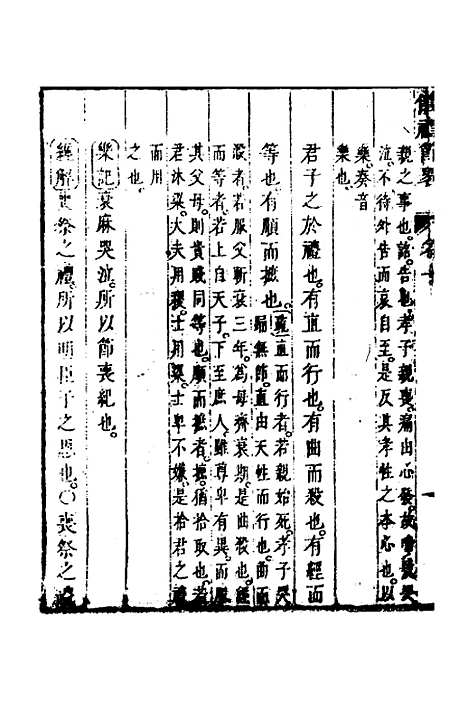 親之事也。詔告也。孝子親喪。痛由心發。故啼號哭
泣。不待外告而哀自至。是反其孝性之本心也。以
樂。奏音
樂也。
君子之於禮也。有直而行也。有曲而殺也。有經而
等也。有順而摭也。疏直而行者。若親始死。孝子哭
踊無節。直由天性而行也。曲而
殺者。若服父斬衰三年。為母齊衰期也。經
而等者。若上自天子。下至庶人。雖尊卑有異。而服
其父母。則貴賤同等也。順而摭者。摭。猶拾取也。若
君沐粱。大夫用稷。士用粱。士卑不嫌。是拾君之禮
而用
之也。
樂記衰麻哭泣。所以節喪紀也。
經解喪祭之禮。所以明臣子之恩也。○喪祭之禮